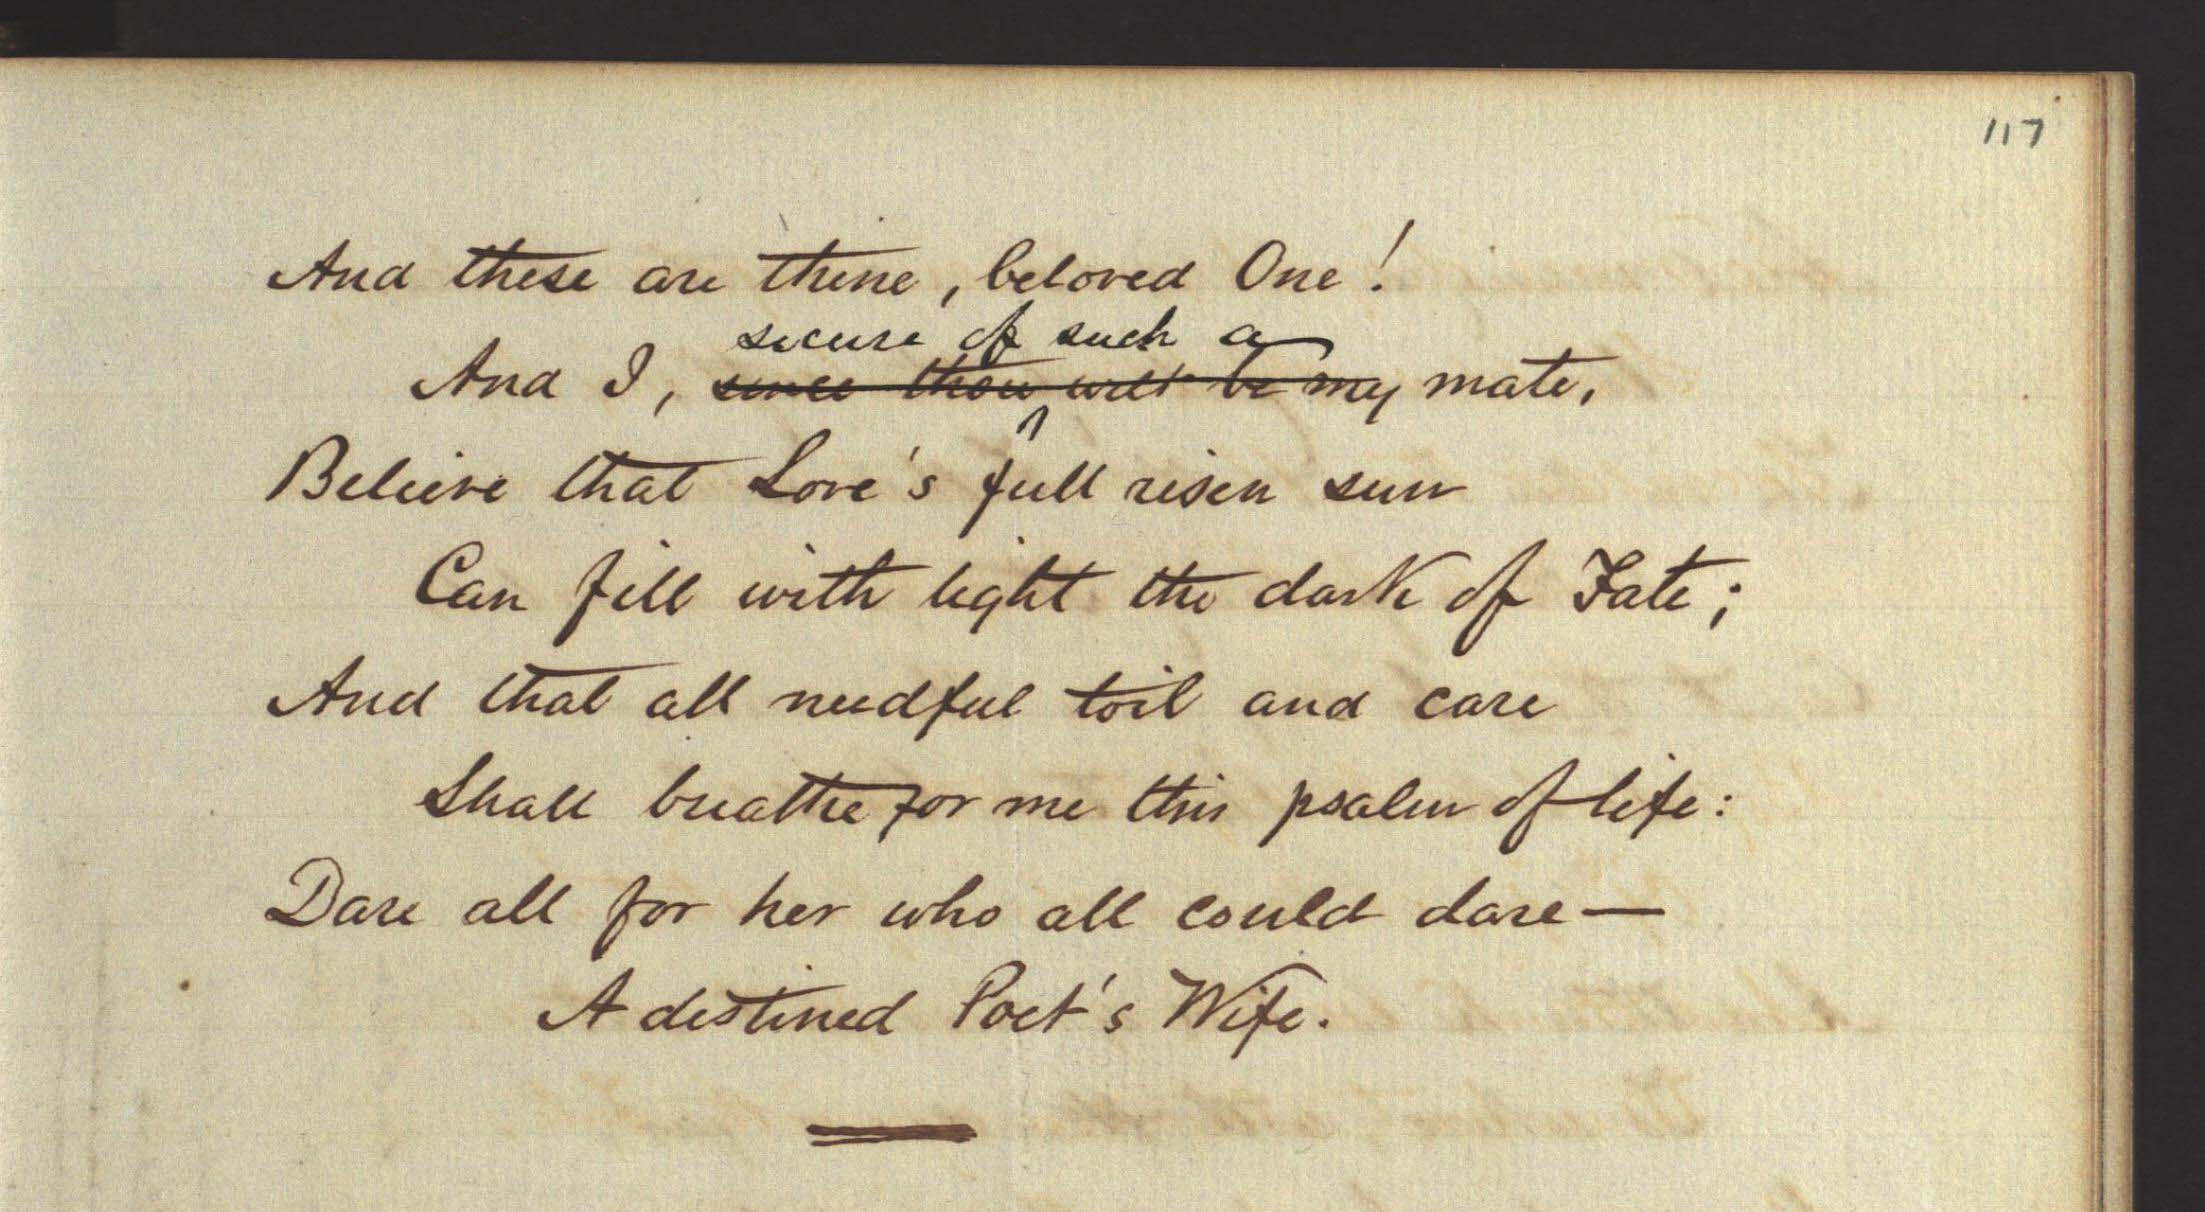 117
And these are thine, beloved One!
secure of such a
And I, since thou wilt be my mate,
Believe that Love's full risen sun
Can fill with light the dark of Fate;
And that all needful toil and care
Shall breathe for me this psalm of life:
Dare all for her who all could dare—
A destined Poet's Wife.